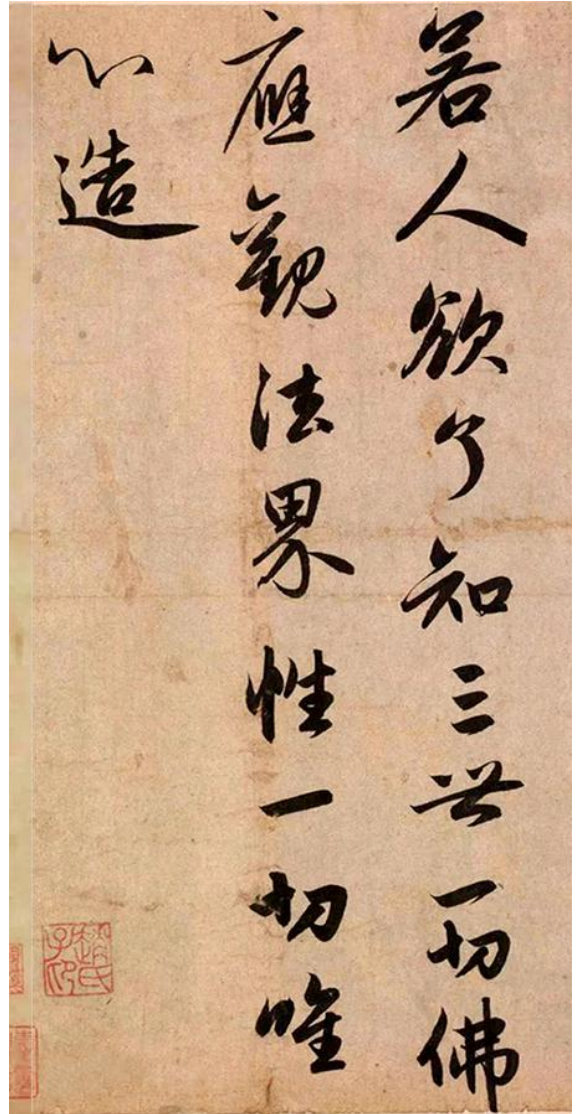 若人欲了知三世一切佛
應觀法界性一切唯
心造
趙氏子印